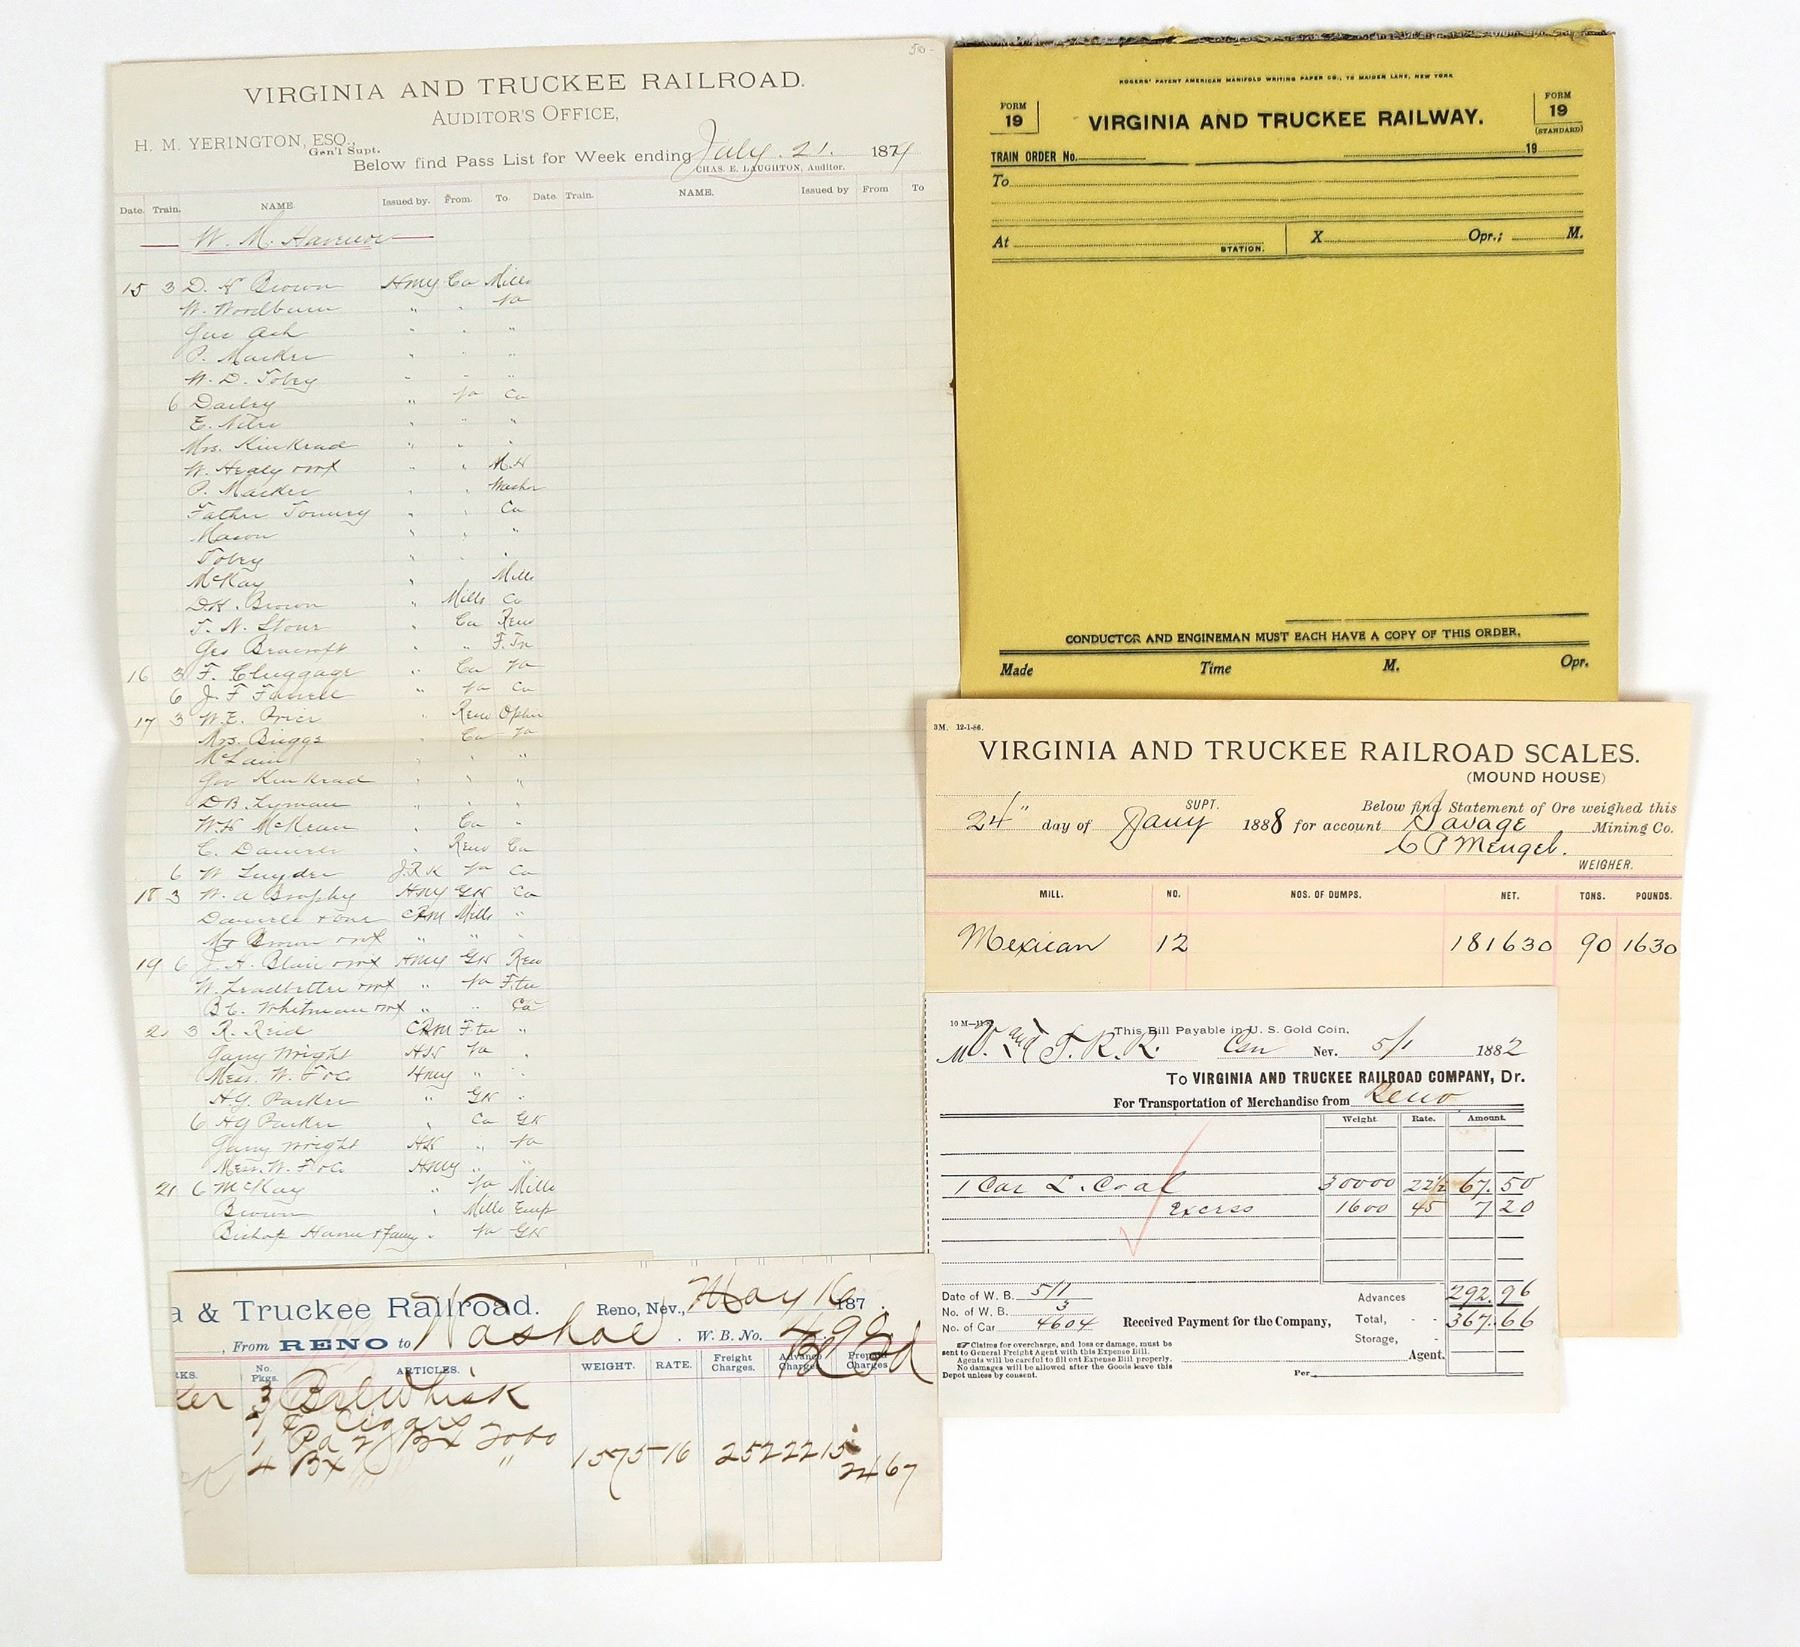 50-
VIRGINIA AND TRUCKEE RAILROAD.
AUDITOR'S OFFICE,
H. M. YERINGTON, ESQ.,
Gen'l Supt.
Below find Pass List for Week ending July 21. 1879
CHAS. E. LAUGHTON, Auditor.
Date. Train. NAME. Issued by. From. To Date. Train. NAME. Issued by From To
W. M.
15 3 D. K Brown HMY Ca Mills
W. Woodburn " " Va
Gus Ash " " "
P. Marker " " "
W. D. Tobey " " "
6 Dailey " Va Ca
E. Niles " " "
Mrs. Kinkead " " "
W. Healy " " M.H
P. Marker " "
Father " " Ca
Mason " " "
Tobey " " "
McKay " Mills
D.K. Brown " Mills Ca
T. N. Stone " Ca Reno
Geo Bancroft " " F. Tr
16 3 F. Cluggage " Ca Va
6 J. F Farrell " Va Ca
17 3 W. E. Price " Reno Ophir
Mrs. Briggs " Ca Va
" " "
Gov Kinkead " " "
D B. Lyman " " "
W. H McKean " Ca "
C. Daniels " Reno Ca
6 W Snyder J.R.K Va Ca
18 3 W. A Brophy HMY GH Ca
Daniels & one CRM Mills "
Mr Brown " " "
19 6 J. A. Blair HMY GH Reno
W. Leadbetter " Va F.tr
B C. Whitman " " Ca
21 3 R. Reid CRM F tr "
Garry Wright HH Va "
Mess. W. F & Co HMY " "
H. G. Parker " GH "
6 H G Parker " Ca GH
Garry Wright HH " Va
Mess. W. F & Co HMY " "
21 6 McKay " Va Mills
Brown " Mills Emp
Bishop & famy " Va GH
ROGERS' PATENT AMERICAN MANIFOLD WRITING PAPER CO., 75 MAIDEN LANE, NEW YORK
FORM
19
VIRGINIA AND TRUCKEE RAILWAY.
FORM
19
(STANDARD)
TRAIN ORDER No. 19
To
At STATION. X Opr.; M.
CONDUCTOR AND ENGINEMAN MUST EACH HAVE A COPY OF THIS ORDER.
Made Time M. Opr.
3M. 12-1-86.
VIRGINIA AND TRUCKEE RAILROAD SCALES.
(MOUND HOUSE)
SUPT. Below find Statement of Ore weighed this
24" day of Jany 1888 for account Savage Mining Co.
C P Mengel.
WEIGHER.
MILL. NO. NOS. OF DUMPS. NET. TONS. POUNDS.
Mexican 12 181630 90 1630
This Bill Payable in U. S. Gold Coin.
M V. and T. R. R. Csn Nev. 5/1 1882
To VIRGINIA AND TRUCKEE RAILROAD COMPANY, Dr.
For Transportation of Merchandise from Reno
Weight. Rate. Amount.
1 Car L. Coal 30000 22½ 67.50
Excess 1600 45 7 20
Date of W. B. 5/1 Advances 292.96
No. of W. B. 3
No. of Car 4604 Received Payment for the Company, Total, - - 367.66
Storage, -
☞ Claims for overcharge, and loss or damage, must be
sent to General Freight Agent with this Expense Bill.
Agents will be careful to fill out Expense Bill properly.
No damages will be allowed after the Goods leave this
Depot unless by consent.
Agent.
Per
a & Truckee Railroad. Reno, Nev., May 16 187 .
, From RENO to Washoe . W. B. No. 498
RKS. No. Pkgs. ARTICLES. WEIGHT. RATE. Freight Charges. Advance Charges. Prepaid Charges.
3 Bbl Whisk
1 C Cigars
1 Pa 2 Bx Tobo
4 Bx " 1575 16 252 2215
2467